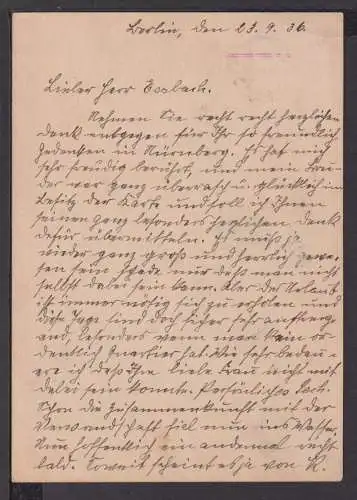 Berlin, den 23.9.36.
Lieber Herr Essbach.
Nehmen Sie recht recht herzlichen
Dank entgegen für Ihr so freundlich
Gedenken in Nürnberg. Es hat mich
sehr freudig berührt, und mein Bru-
der war ganz überrascht u. glücklich im
Besitz der Karte und soll ich Ihnen
seinen ganz besonders herzlichen Dank
dafür übermitteln. Es muß ja
wieder ganz groß und herrlich gewe-
sen sein schade nur daß man nicht
selbst dabei sein kann. Aber der Urlaub
ist immer nötig sich zu erholen und
diese Tage sind doch sicher sehr anstreng-
end, besonders wenn man kein or-
dentlich Quartier hat. Wie sehr bedau-
ere ich daß Ihre liebe Frau nicht mit
dabei sein konnte. Persönliches Pech.
Schon die Zusammenkunft mit der
Verwandschaft fiel nun ins Wasser,
Nun hoffentlich ein andermal recht
bald. Soweit scheint es ja von K.